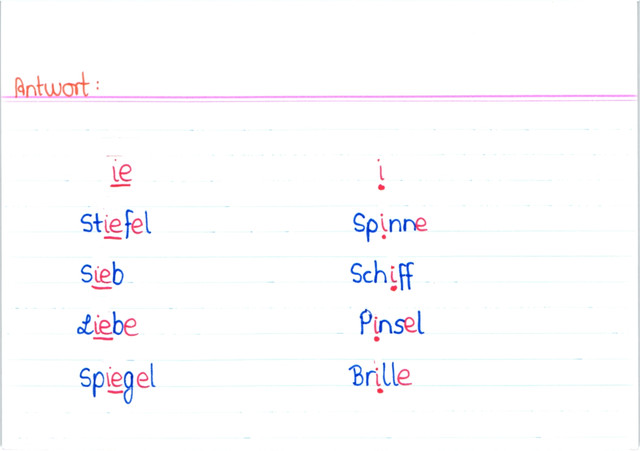 Antwort:
ie i
Stiefel Spinne
Sieb Schiff
Liebe Pinsel
Spiegel Brille